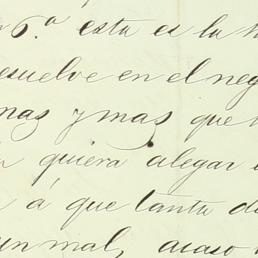 6.ª esta es la
esuelve en el neg
mas y mas que
quiera alegar
á que tanta d
un mal, acaso